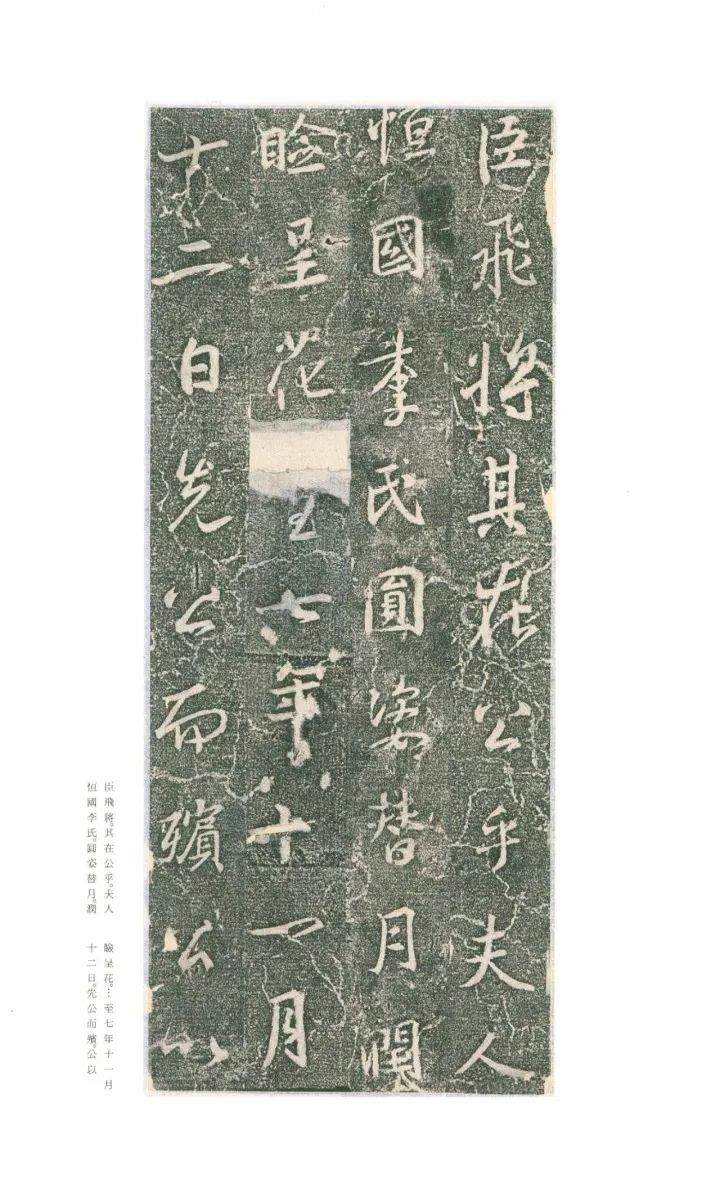 臣飛將其在公乎夫人
恒國李氏圓姿替月潤
臉呈花至七年十一月
十二日先公而殯公以
臣飛將。其在公乎。夫人
恒國李氏。圓姿替月。潤
臉呈花。…至七年十一月
十二日。先公而殯。公以